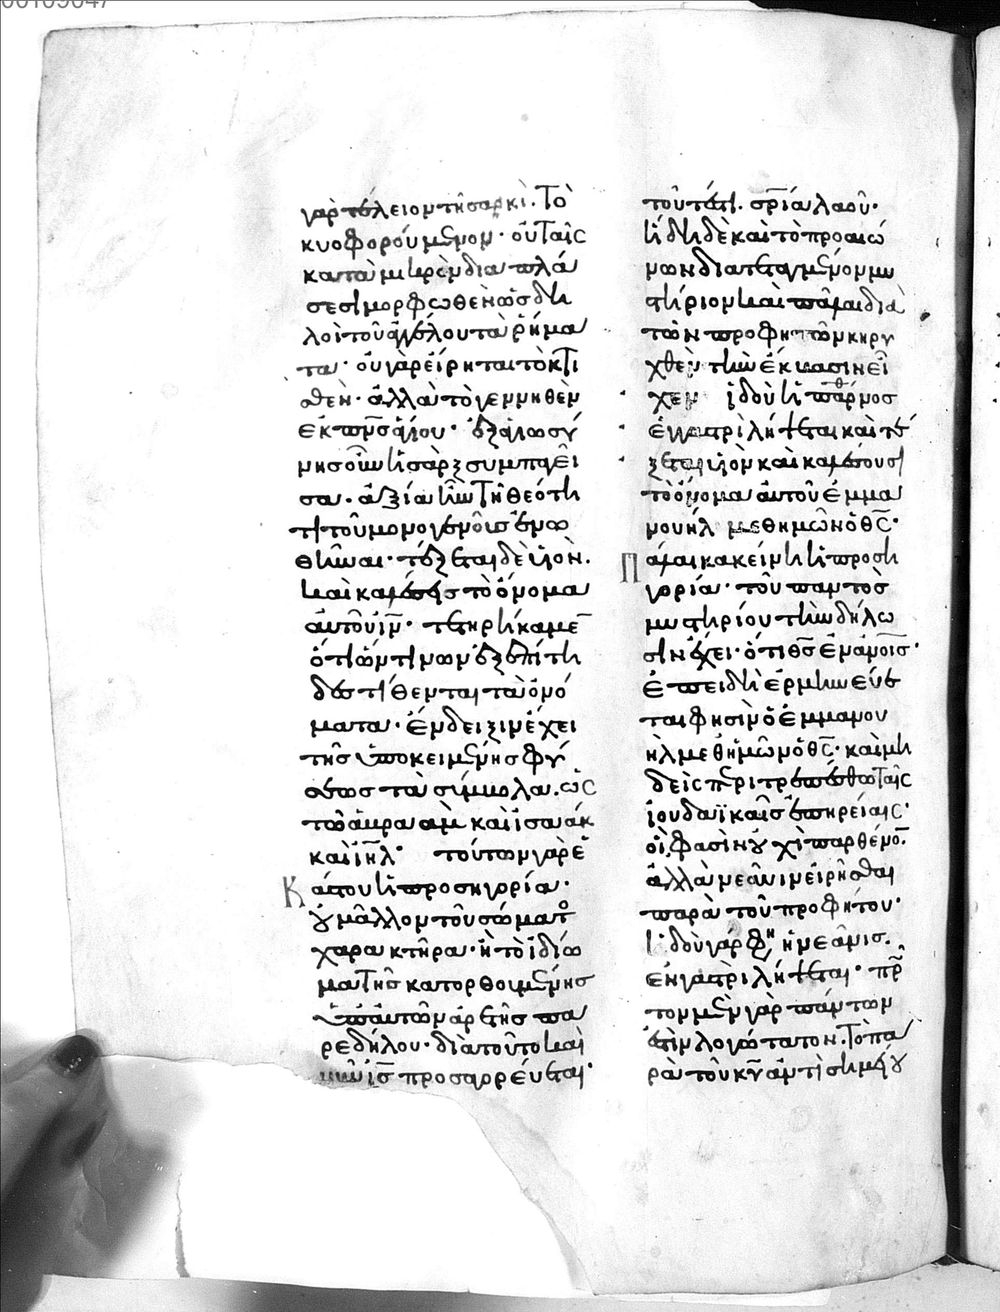 γὰρ τέλειον τῆ σαρκὶ. Τὸ
κυοφορούμενον· οὐ ταῖς
κατὰ μικρὸν διαπλά
σεσι μορφωθὲν ὡς δη
λοῖ τοῦ ἀγγέλου τὰ ῥήμα
τα· οὐ γὰρ εἴρηται τὸ κτι
σθὲν· ἀλλὰ τὸ γεννηθὲν
ἐκ πνς ἁγίου·
σα· ἀξία ἦν τῆ θεότη
τι τοῦ μονογενοῦς ἑνω
θῆναι· τέξεται δὲ υἱὸν.
καὶ καλέσεις τὸ ὄνομα
αὐτοῦ ιν·
ὅτι ὧν τινων
τίθενται τὰ ὀνό
ματα· ἔνδειξιν ἔχει
τῆς ὑποκειμένης φύ
σεως τὰ σύμβολα. ὡς
τῶ ἀβραὰμ καὶ ἰσαὰκ
καὶ ιηλ· τούτων γὰρ ἑ
κάστου ἡ προσηγορία·
οὐ μᾶλλον τοῦ σώματος
χαρακτῆρα· ἢ τὸ ἰδίω
μα τῆς κατορθουμένης
ὑπ' αὐτῶν ἀρετῆς πα
ρεδήλου· διὰ τοῦτο καὶ
νῦν ις προσαγορεύεται·
τοῦτέστι. σρία λαοῦ·
ἤδη δὲ καὶ τὸ προαιώ
νων διατεταγμένον μυ
στήριον καὶ πάλαι διὰ
τῶν προφητῶν κηρυ
χθὲν τὴν ἔκβασιν εἶ
χεν ἰδοὺ ἡ παρθένος
ἐν γαστρὶ λήψεται καὶ τέ
ξεται υἱὸν καὶ καλέσουσι
τὸ ὄνομα αὐτοῦ ἐμμα
νουὴλ μεθημῶν ὁ θς·
Πάλαι κἀκείνη ἡ προση
γορία· τοῦ παντὸς
μυστηρίου τὴν δήλω
σιν ἔχει· ὅτι θς ἐν ἀνοις·
ἐπειδὴ ἑρμηνεύε
ται φησὶν ὁ ἐμμανου
ὴλ μεθημῶν ὁ θς· καὶ μη
δεὶς περιτρεπέσθω ταῖς
ἰουδαϊκαῖς ἐπηρείαις·
οἵ φασιν οὐχὶ παρθένον·
ἀλλὰ νεᾶνιν εἰρῆσθαι
παρὰ τοῦ προφήτου·
ἰδοὺ γάρ φη ἡ νεᾶνις.
ἐν γαστρὶ λήψεται· πρ
τον μὲν γὰρ πάντων
ἐστὶν λογώτατον. Τὸ πα
ρὰ τοῦ κυ